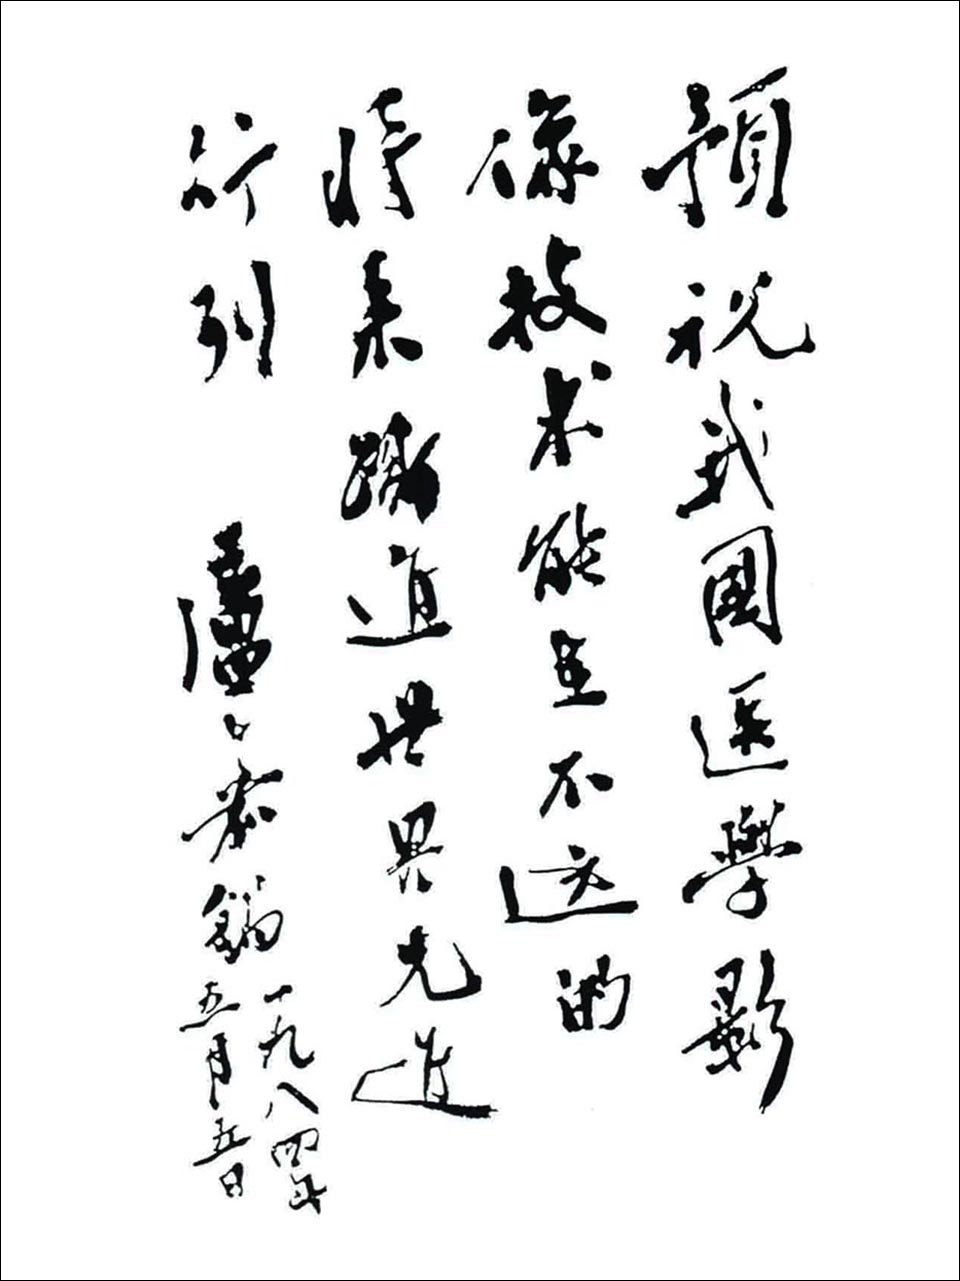 預祝我國医學影
像技术能在不远的
将来躋進世界先進
行列
盧嘉錫
一九八四年
五月五日